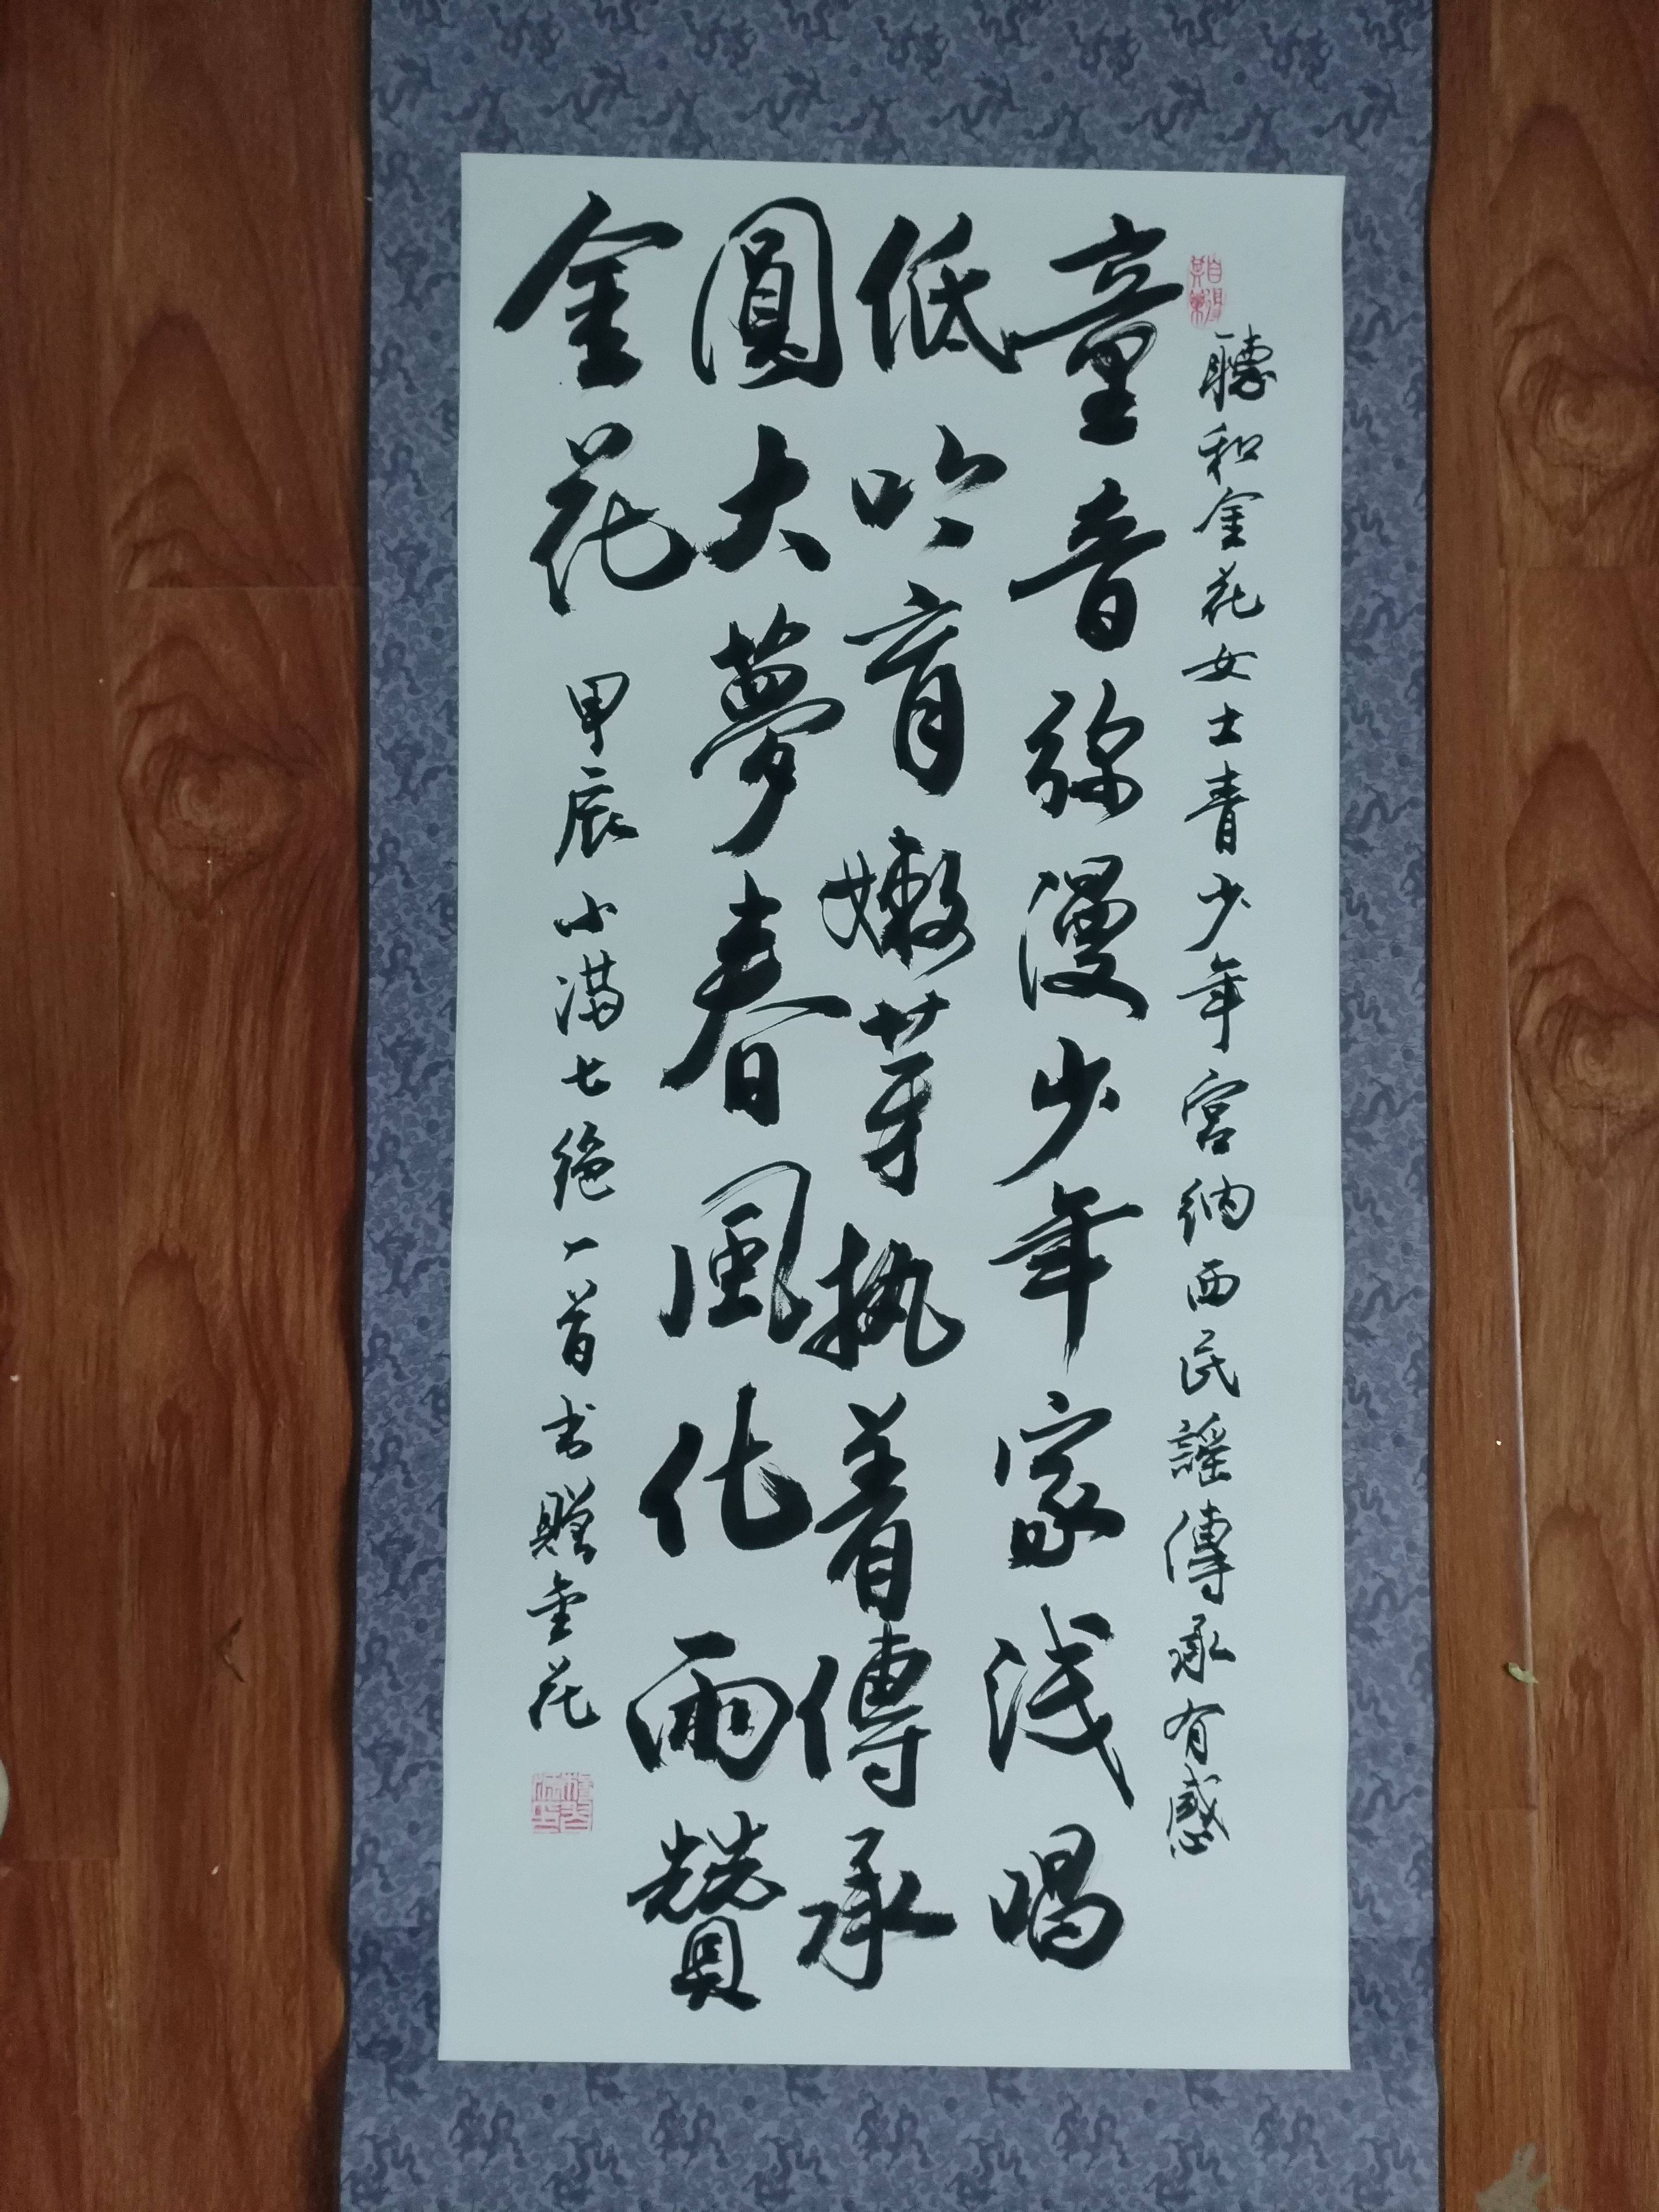 聽和金花女士青少年宮納西民謠傳承有感
童音弥漫少年家浅唱
低吟育嫩芽执着傳承
圓大夢春風化雨贊
金花
甲辰小满七绝一首书赠金花